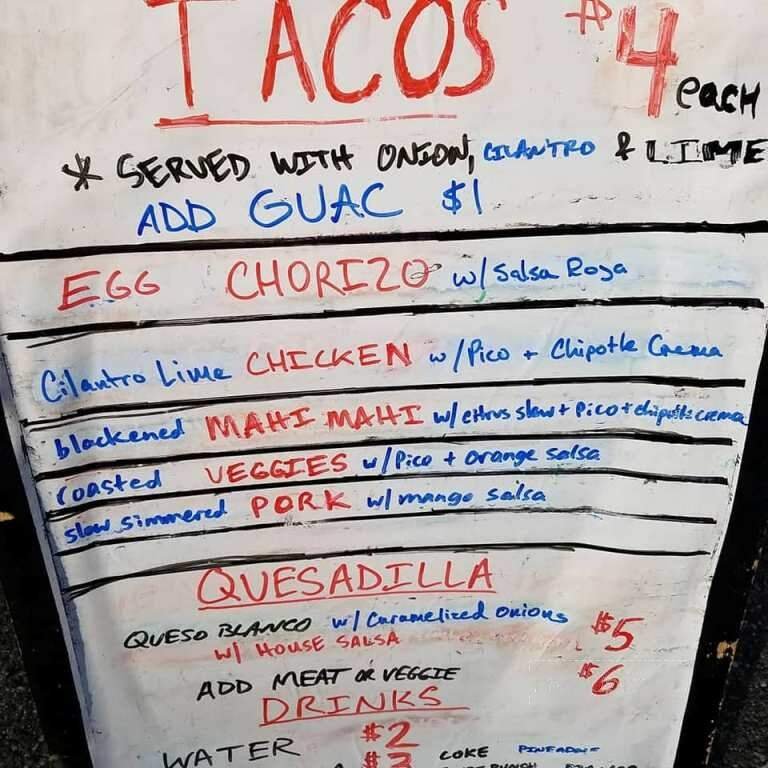 TACOS $4 each
* SERVED WITH ONION, CILANTRO & LIME
ADD GUAC $1
EGG CHORIZO w/ Salsa Roja
Cilantro Lime CHICKEN w/ Pico + Chipotle Crema
blackened MAHI MAHI w/ citrus slaw + Pico + chipotle crema
roasted VEGGIES w/ Pico + orange salsa
slow simmered PORK w/ mango salsa
QUESADILLA
QUESO BLANCO w/ Caramelized onions $5
w/ HOUSE SALSA
ADD MEAT or VEGGIE $6
DRINKS
WATER $2
$3 COKE